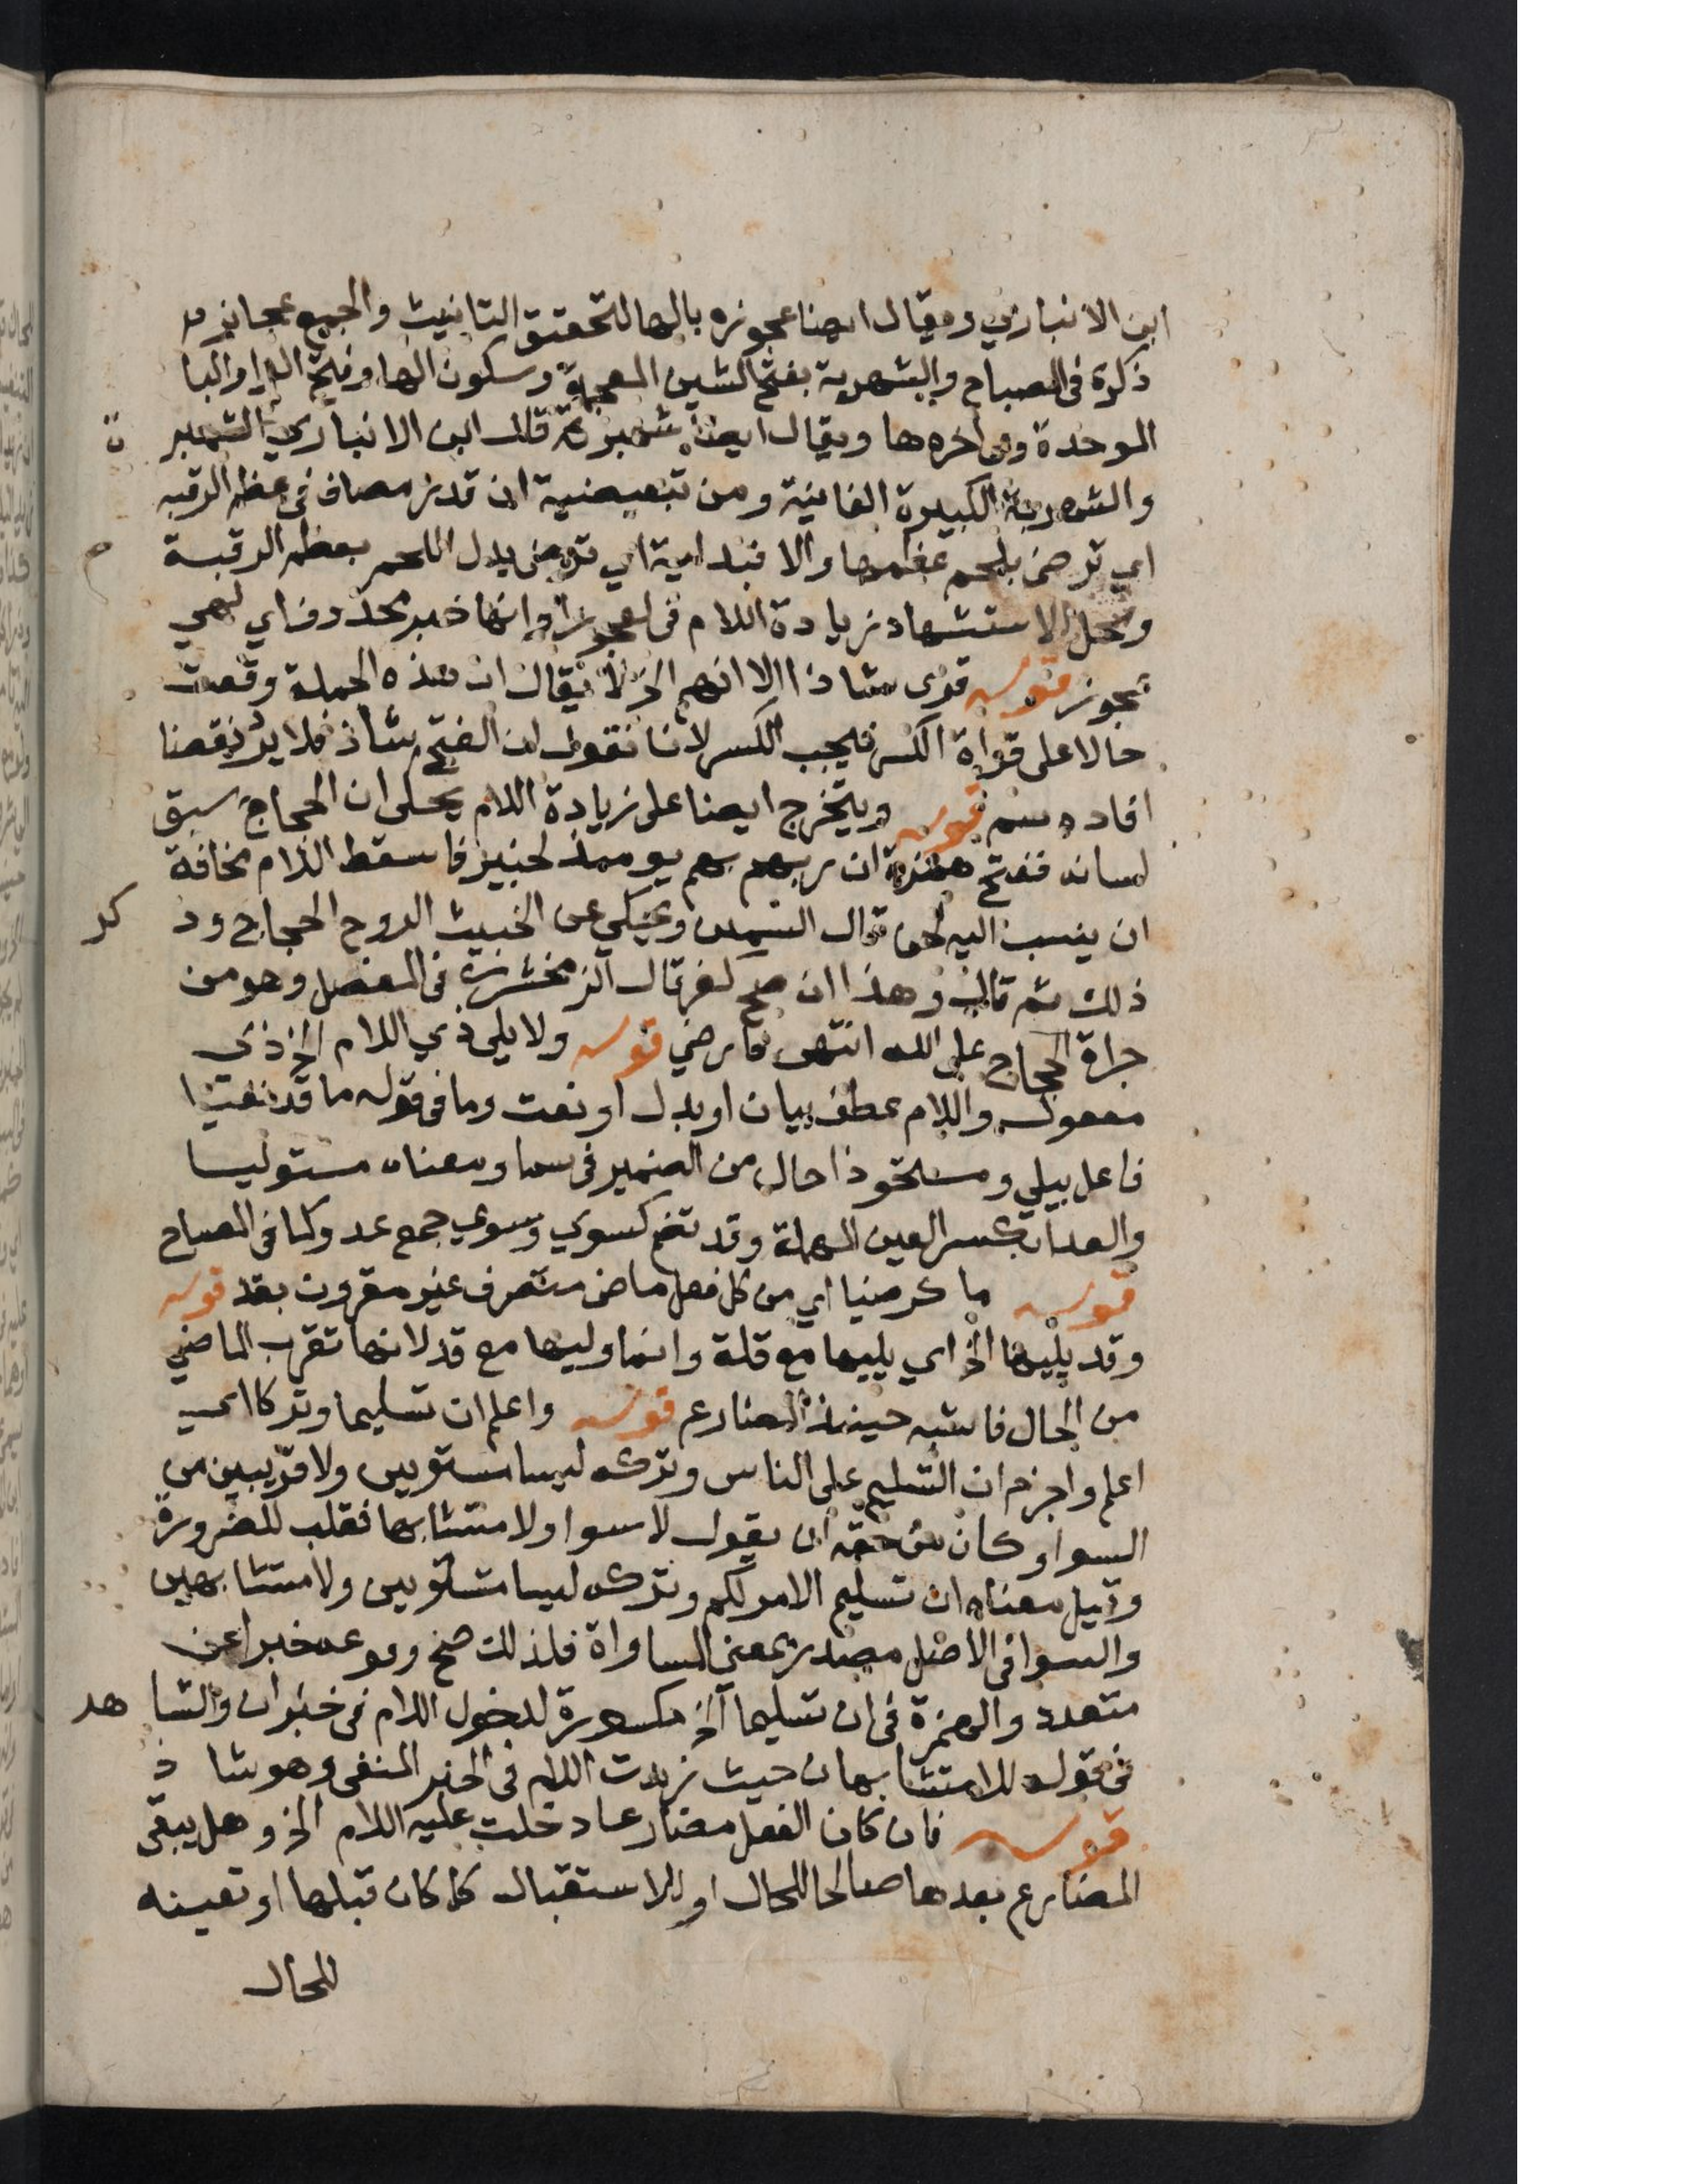 ابن الانباري ويقال ايضا عجوزه بالها لتحقيق التانيث والجمع عجايز
ذكره في المصباح والشهربة بفتح الشين المعجمة وسكون الها وفتح الرا والبا
الموحدة وفي اخره ها ويقال ايضا شهبرة قال ابن الانباري الشهبر ة
والشهربة الكبيرة الفانية ومن تبعيضية ان قدر مضاف في عظم الرقبه
اي ترضى بلحم عظمها والا فبدلية اي ترضى بدل اللحم بعظم الرقبة
ومحل الاستشهاد زيادة اللام في لعجوز وانها خبر محذوف اي لهي
عجوز قوله قرى شاذا الا انهم الخ لا يقال ان هذه الجملة وقعت
حالا على قراة الكسر فيجب الكسر لانا نقول ان الفتح شاذ فلا يرد نقضا
افاده سم قوله ويتخرج ايضا على زيادة اللام يحكى ان الحجاج سبق
لسانه ففتح همزة ان ربهم بهم يومئذ لخبير فاسقط اللام مخافة
ان ينسب اليه لحن قال السمين ويحكي عن الخبيث الروح الحجاج وذ كر
ذلك ثم قال وهذا ان صح كفر قال الزمخشري في المفصل وهو من
جراة الحجاج على الله انتهى فارضي قوله ولا يلي ذي اللام الخ ذي
مفعول واللام عطف بيان او بدل او نعت وما في قوله ما قد نفيا
فاعل بيلي ومستحوذا حال من الضمير في سما ومعناه مستوليا
والعدا بكسر العين المهملة وقد تضم كسوي وسوي جمع عدو كما في المصباح
قوله ما كرضيا اي من كل فعل ماض متصرف غير مقرون بقد قوله
وقد يليها الخ اي يليها مع قلة وانما وليها مع قد لانها تقرب الماضي
من الحال فاشبه حينئذ المضارع قوله واعلم ان تسليما وتركا اي
اعلم واجزم ان التسليم على الناس وتركه ليسا مستويين ولا قريبين من
السوا وكان من حقه ان يقول لا سوا ولا متشابها فقلب للضرورة
وقيل معناه ان تسليم الامر لكم وتركه ليسا متساويين ولا متشابهين
والسوا في الاصل مصدر بمعنى المساواة فلذلك صح وقوعه خبرا عن
متعدد والهمزة في ان تسليما الخ مكسورة لدخول اللام في خبر ان والشا هد
في قوله للا متشابهان حيث زيدت اللام في الخبر المنفي وهو شا ذ
قوله فان كان الفعل مضارعا دخلت عليه اللام الخ وهل يبقى
المضارع بعدها صالحا للحال او للاستقبال كما كان قبلها او تعينه
للحال